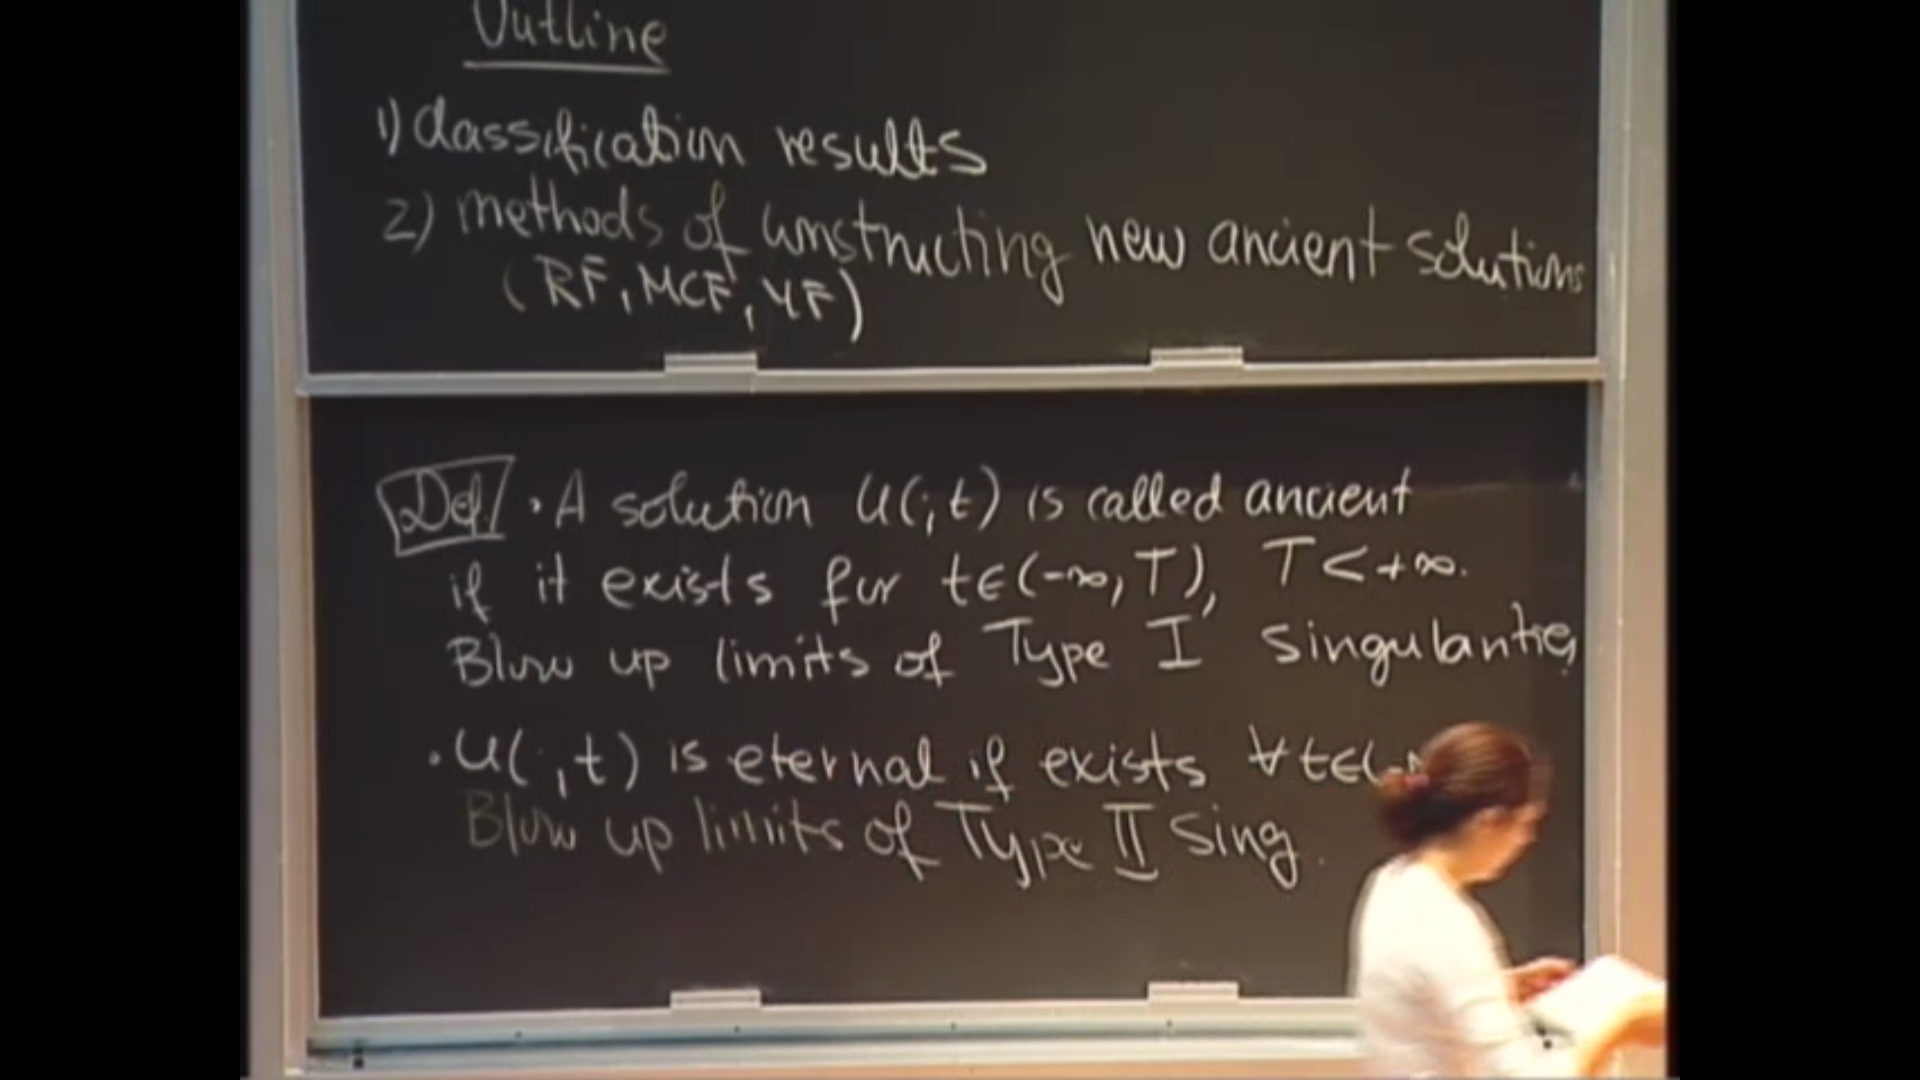 Outline
1) classification results
2) methods of constructing new ancient solutions
(RF, MCF, YF)
Def. · A solution u(·,t) is called ancient
if it exists for t∈(-∞, T), T < +∞.
Blow up limits of Type I singularities
· u(·,t) is eternal if exists ∀ t∈(-
Blow up limits of Type II sing.